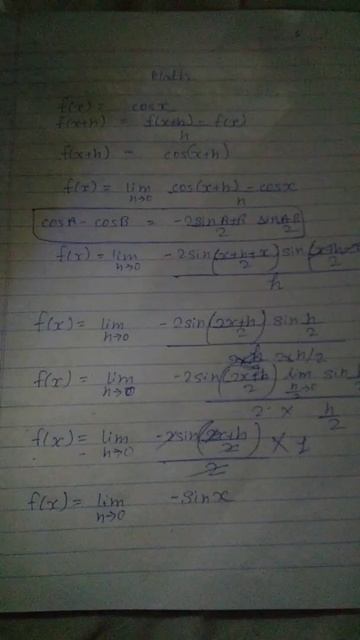 Maths
f(x) = cosx
f(x+h) = f(x+h) - f(x)
h
f(x+h) = cos(x+h)
f(x) = lim h→0 cos(x+h) - cosx
h
cosA - cosB = -2sin A+B/2 sin A-B/2
f(x) = lim h→0 -2sin(x+h+x/2) sin(x+h-x/2)
h
f(x) = lim h→0 -2sin(2x+h/2) sin h/2
2xh/2
f(x) = lim h→0 -2sin(2x+h/2) lim h/2→0 sin h/2
2 × h/2
f(x) = lim h→0 -2sin(2x+h/2) × 1
2
f(x) = lim h→0 -sinx